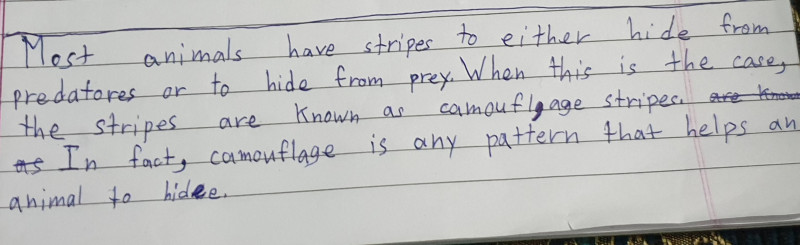 Most animals have stripes to either hide from
predatores or to hide from prey. When this is the case,
the stripes are known as camouflgage stripes. are know
as In fact, camouflage is any pattern that helps an
animal to hidee.